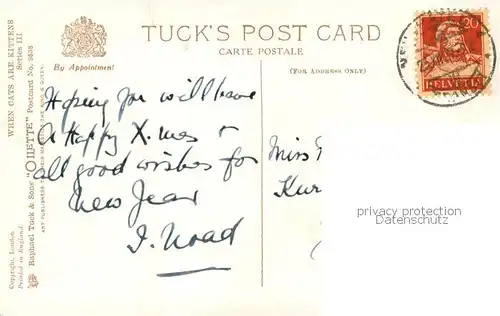 TUCK'S POST CARD
CARTE POSTALE
By Appointment
(FOR ADDRESS ONLY)
WHEN CATS ARE KITTENS
Series III
Raphael Tuck & Sons' "OILETTE" Postcard No.
ART PUBLISHERS
Copyright, London.
Printed in England.
20
HELVETIA
Hoping you will have
A Happy X.mas &
all good wishes for
New Year
J. Noad
Miss
Kur
privacy protection
Datenschutz